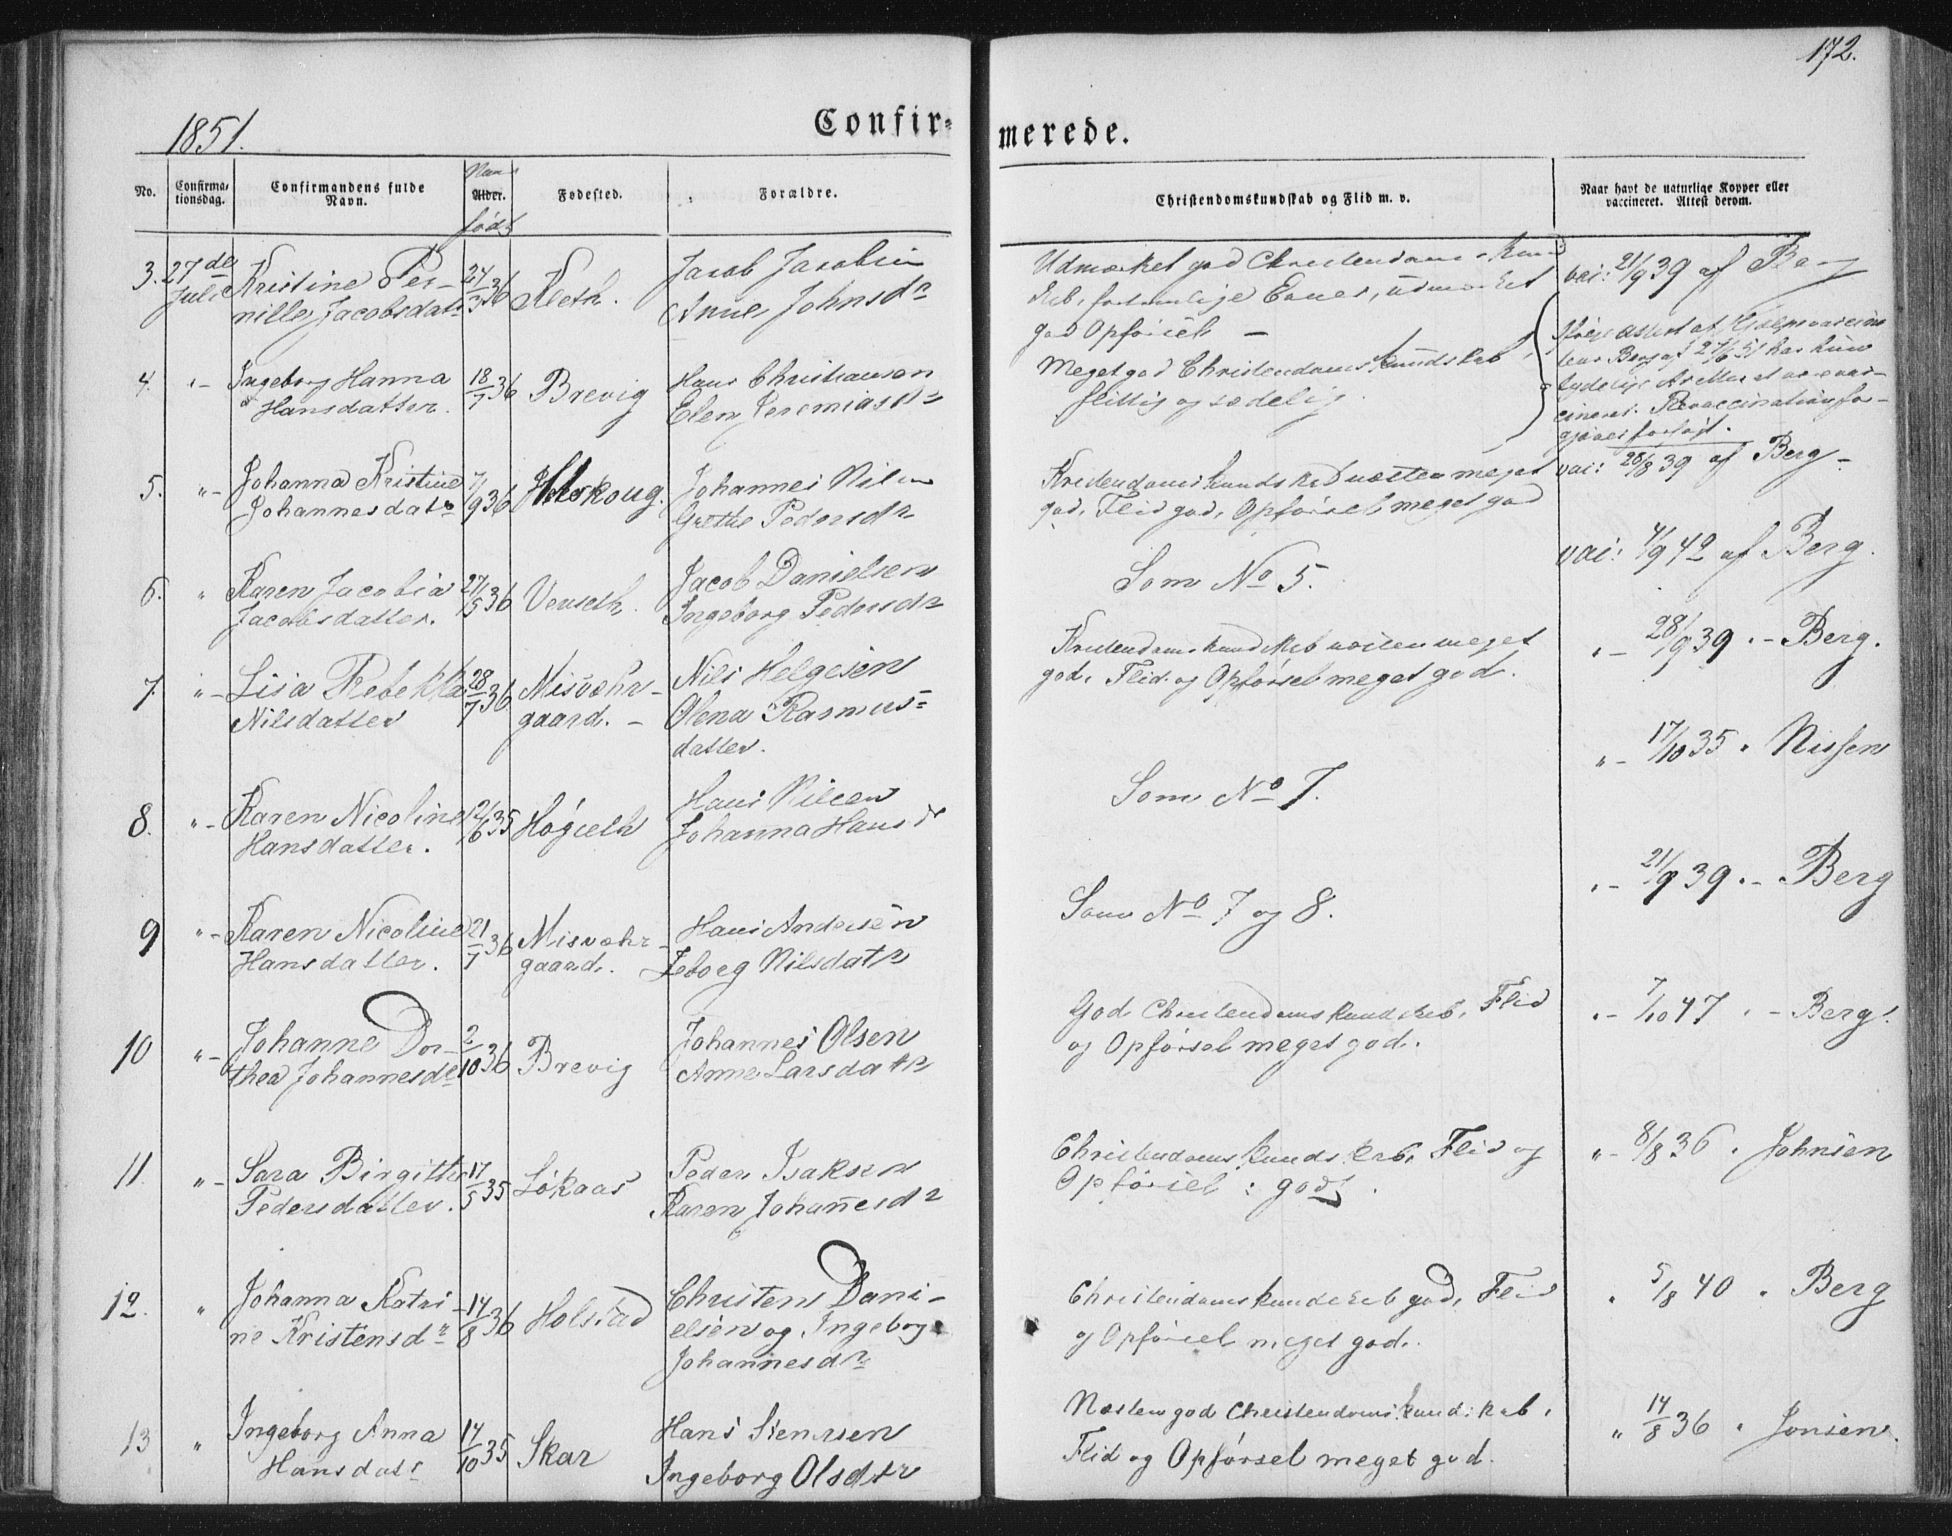 172.
1851.
Confir-
merede.
No.
Confirma-
tionsdag.
Confirmandens fulde
Navn.
Naar
Alder.
født
Fødested.
Forældre.
Christendomskundskab og Flid m. v.
Naar havt de naturlige Kopper eller
vaccineret. Attest derom.
3. 27de Juli
Kristine Per-
nille Jacobsdatr
24/3 36
Jacob Jacobsen
Anne Johnsdr
Udmærket god Christendoms-Kund
skb, fortrinlige Evner, udmærket
god Opførsel –
vai: 21/9 39 af Berg
4. "–
Ingeborg Hanna
Hansdatter.
18/7 36
Brevig
Hans Christiansen
Elen Jeremiasdr
Meget god Christendomskundskab
flittig og sædelig.
ifølge Attest af Hjælpevaccina
teur Berg af 27/6 51 har hun
tydelige Ar efter at være vac-
cineret. Revaccination for-
gjæves forsøgt.
5. "–
Johanna Kristine
Johannesdatr
7/9 36
Johannes Nilsen
Grethe Pedersdr
Kristendomskundskab næsten meget
god, Flid god, Opførsel meget god
vai: 28/8 39 af Berg –
6. "
Karen Jacobia
Jacobsdatter.
27/5 36
Venseth.
Jacob Danielsen
Ingeborg Pedersdr
Som No 5.
vai: 4/9 42 af Berg.
7. "–
Lisa Rebekka
Nilsdatter
28/7 36
Misvæhr-
gaard. –
Nils Helgesen
Olena Rasmus=
datter.
Kristendomskundskab næsten meget
god, Flid og Opførsel meget god.
"– 28/9 39 "– Berg.
8. "–
Karen Nicoline
Hansdatter.
12/6 35
Høgseth
Hans Nilsen
Johanna Hansdr
Som No 7.
"– 17/10 35 " Nissen
9 "–
Karen Nicoline
Hansdatter.
21/7 36
Misvæhr-
gaard.
Hans Andersen
Zeborg Nilsdatr
Som No 7 og 8.
"– 21/9 39 "– Berg
10 "–
Johanne Dor-
thea Johannesdr
2/10 36
Brevig
Johannes Olsen
Anne Larsdatr
God Christendomskundskab, Flid
og Opførsel meget god.
"– 7/10 47 "– Berg.
11. "–
Sara Birgitte
Pedersdatter.
17/5 35
Løkaas
Peder Isaksen
Karen Johanesdr
Christendomskundskab, Flid og
Opførsel: godt.
"– 8/8 36 " Johnsen
12. "
Johanna Katri-
ne Kristensdr
14/8 36
Holstad
Christen Dani-
elsen og Ingeborg
Johannesdr
Christendomskundskab god, Flid
og Opførsel meget god.
" 5/8 40 " Berg
13 "
Ingeborg Anna
Hansdatr
14/10 35
Skar
Hans Stensen
Ingeborg Olsdtr
Næsten god Christendomskundskab,
Flid og Opførsel meget god.
" 14/8 36 " Jonsen.